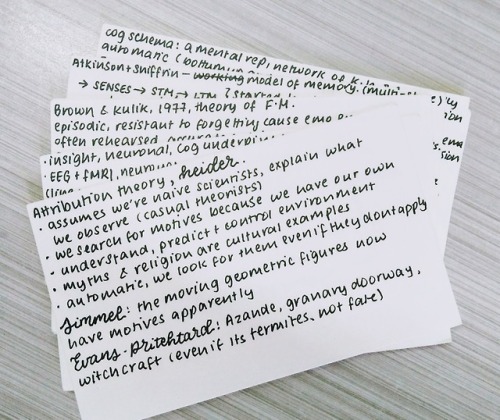 cog schema: a mental rep, network of k
automatic (bottom
Atkinson + Shiffrin - working model of memory. (multi-s
→ SENSES → STM → LTM
) ly
Brown & Kulik, 1977, theory of F.M.
episodic, resistant to forgetting cause emo
often rehearsed,
· insight, neuronal, cog underpi
· EEG + fMRI, neuronal
Attribution theory, heider.
· assumes we're naive scientists, explain what
we observe (casual theorists)
· we search for motives because we have our own
· understand, predict + control environment
· myths & religion are cultural examples
· automatic, we look for them even if they dont apply
Simmel: the moving geometric figures now
have motives apparently
Evans-Pritchard: Azande, granary doorway,
witchcraft (even if its termites, not fate)